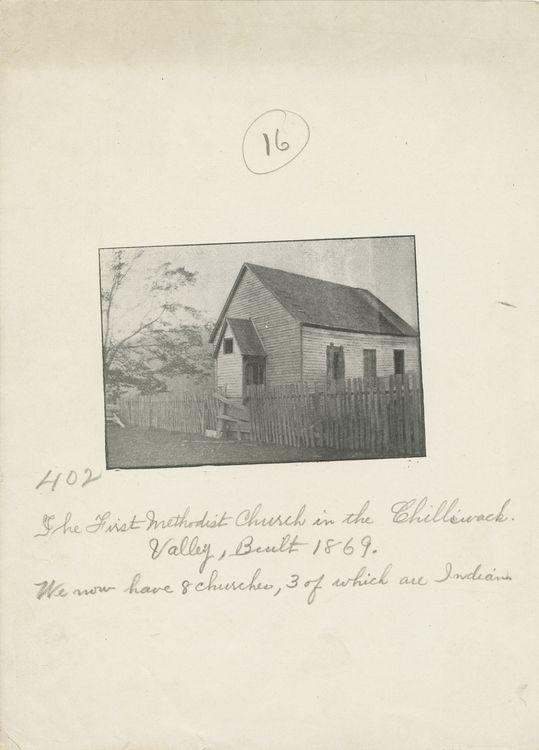 16
402
The First Methodist Church in the Chilliwack.
Valley, Built 1869.
We now have 8 churches, 3 of which are Indian